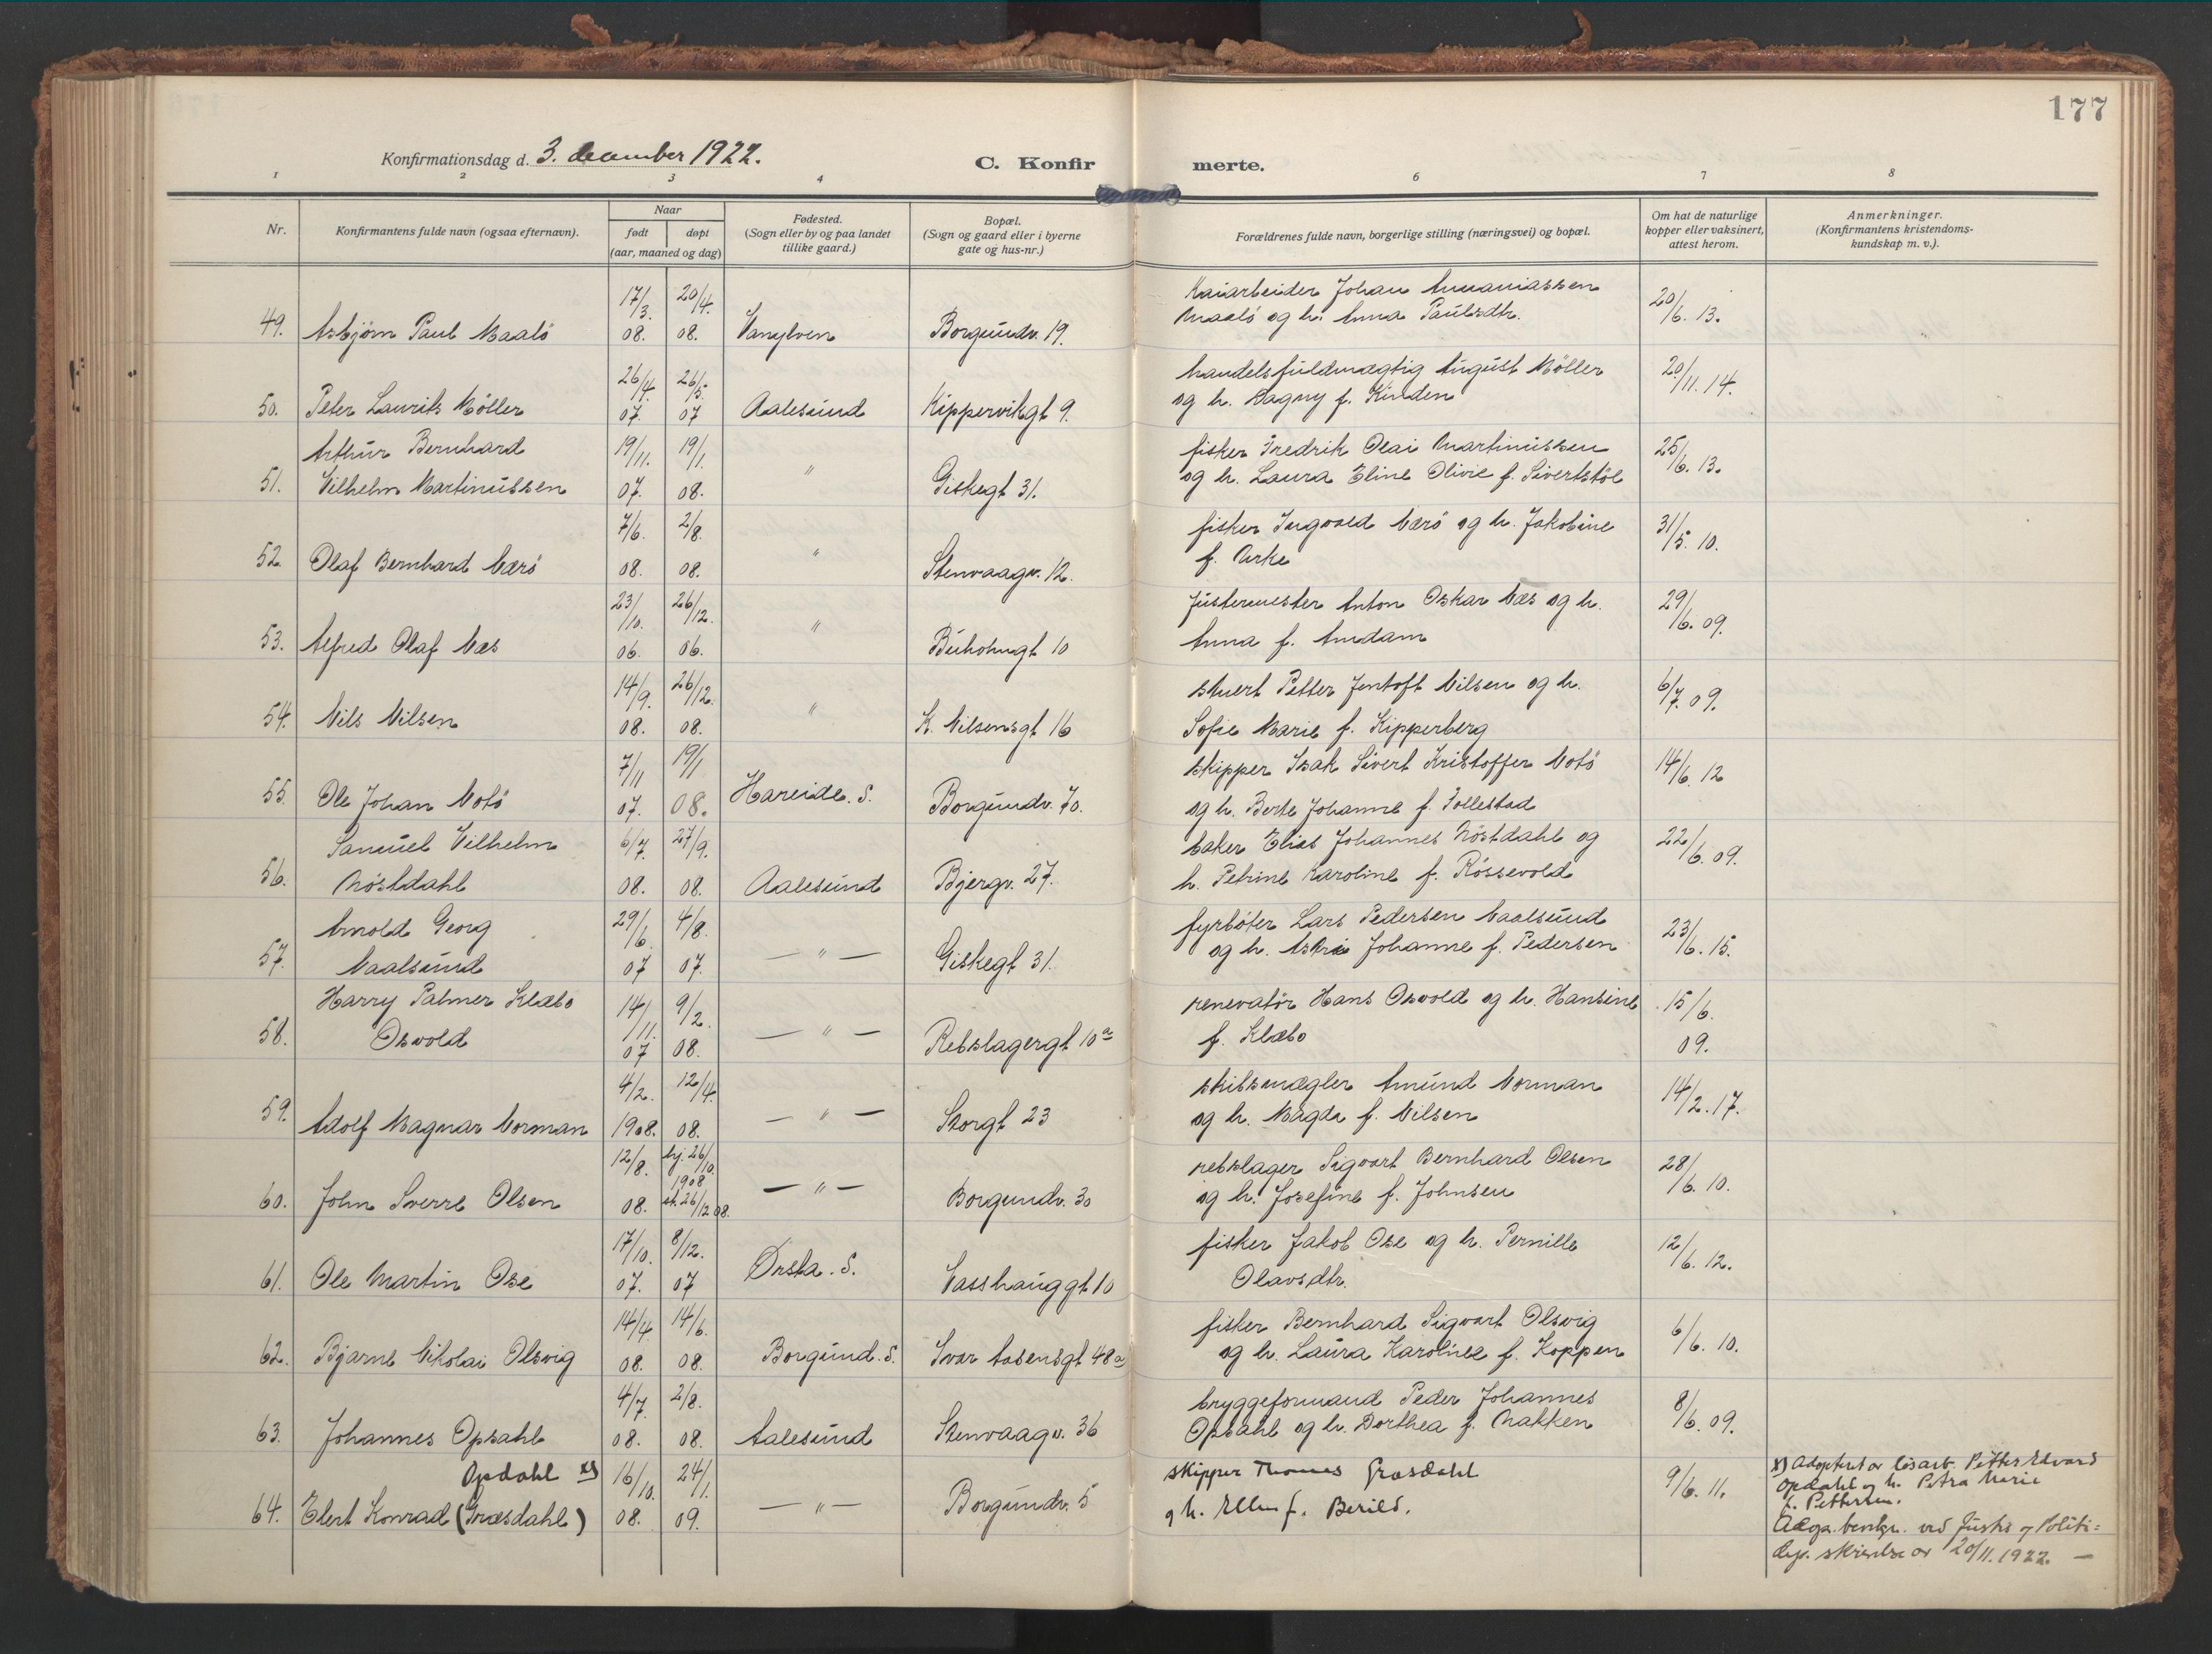 177
Konfirmationsdag d. 3. december 1922.
C. Konfir merte.
1 2 3 4 6 7 8
Nr.
Konfirmantens fulde navn (ogsaa efternavn).
Naar
født døpt
(aar, maaned og dag)
Fødested.
(Sogn eller by og paa landet
tillike gaard.)
Bopæl.
(Sogn og gaard eller i byerne
gate og hus-nr.)
Forældrenes fulde navn, borgerlige stilling (næringsvei) og bopæl.
Om hat de naturlige
kopper eller vaksinert,
attest herom.
Anmerkninger.
(Konfirmantens kristendoms-
kundskap m. v.).
17/3. 20/4. Kaiarbeider Johan Annaniassen 20/6. 13.
49. Asbjörn Paul Maalö 08. 08. Vanylven Borgundv. 19. Maalö og h. Anna Paulsdtr.
26/4. 26/5. handelsfuldmægtig August Möller 20/11. 14.
50. Peter Laurits Möller 07. 07 Aalesund Kippervikgt 9. og h. Dagny f. Kinden
Arthur Bernhard 19/11. 19/1. fisker Fredrik Olai Martinussen 25/6. 13.
51. Vilhelm Martinussen 07. 08. " Giskegt 31. og h. Laura Eline Olivie f. Sivertstöl
7/6. 2/8. fisker Ingvald Nærö og h. Jakobine 31/5. 10.
52. Olaf Bernhard Nærö 08. 08. " Stenvaagv. 12. f. Urke
23/10. 26/12. Justermester Anton Oskar Næs og h. 29/6. 09.
53. Alfred Olaf Næs 06. 06. " Buholmgt 10 Anna f. Amdam
14/9. 26/12. stuert Petter Jentoft Nilsen og h. 6/7. 09.
54. Nils Nilsen 08. 08. " K. Nilsensgt 16 Sofie Marie f. Kipperberg
7/11 19/1 skipper Isak Sivert Kristoffer Notö 14/6. 12
55. Ole Johan Notö 07. 08. Hareide. S. Borgundv. 70. og h. Berte Johanne f. Follestad
Samuel Vilhelm 6/7. 27/9. baker Elias Johannes Nöstdahl og 22/6. 09.
56. Nöstdahl 08. 08. Aalesund Bjergv. 27. h. Petrine Karoline f. Rössevold
Arnold Georg 29/6. 4/8. fyrböter Lars Pedersen Naalsund 23/6. 15.
57. Naalsund 07 07. — " — Giskegt 31. og h. Johanne f. Pedersen
Harry Palmer Klæbo 14/11. 9/2. renovatör Hans Osvold og h. Hansine 15/6.
58. Osvold 07 08. — " — Rebslagergt 10a f. Klæbo 09.
4/2. 12/4. skibsmægler Amund Norman 14/2. 17.
59. Adolf Magnar Norman 1908. 08. — " — Storgt 23 og h. Magda f. Nilsen
12/8. hj. 26/10. 1908 rebslager Sigvart Bernhard Olsen 28/6. 10.
60. John Sverre Olsen 08. st. 26/12 08. — " — Borgundv. 30 og h. Josefine f. Johnsen
17/10. 8/12. fisker Jakob Ose og h. Pernille 12/6. 12.
61. Ole Martin Ose 07. 07 Örsta. S. Vasshauggt 10 Olavsdtr.
14/4. 14/6. fisker Bernhard Sigvart Olsvig 6/6. 10.
62. Bjarne Nikolai Olsvig 08. 08. Borgund. S. Ivar Aasensgt 48a og h. Laura Karoline f. Koppen
4/7. 2/8. bryggeformand Peder Johannes 8/6. 09.
63. Johannes Opsahl 08. 08. Aalesund Stenvaagv. 36 Opsahl og h. Dorthea f. Nakken
Opdahl x) 16/10. 24/1. skipper Thomas Græsdahl 9/6. 11.
64. Elert Konrad (Græsdahl) 08. 09. — " — Borgundv. 5 og h. Ellen f. Berild.
x) Adoptert av lösarb. Petter Edvard
Opdahl og h. Petra Marie
f. Pettersen.
ved Justis og Politi=
dep. skrivelse av 20/11. 1922. —